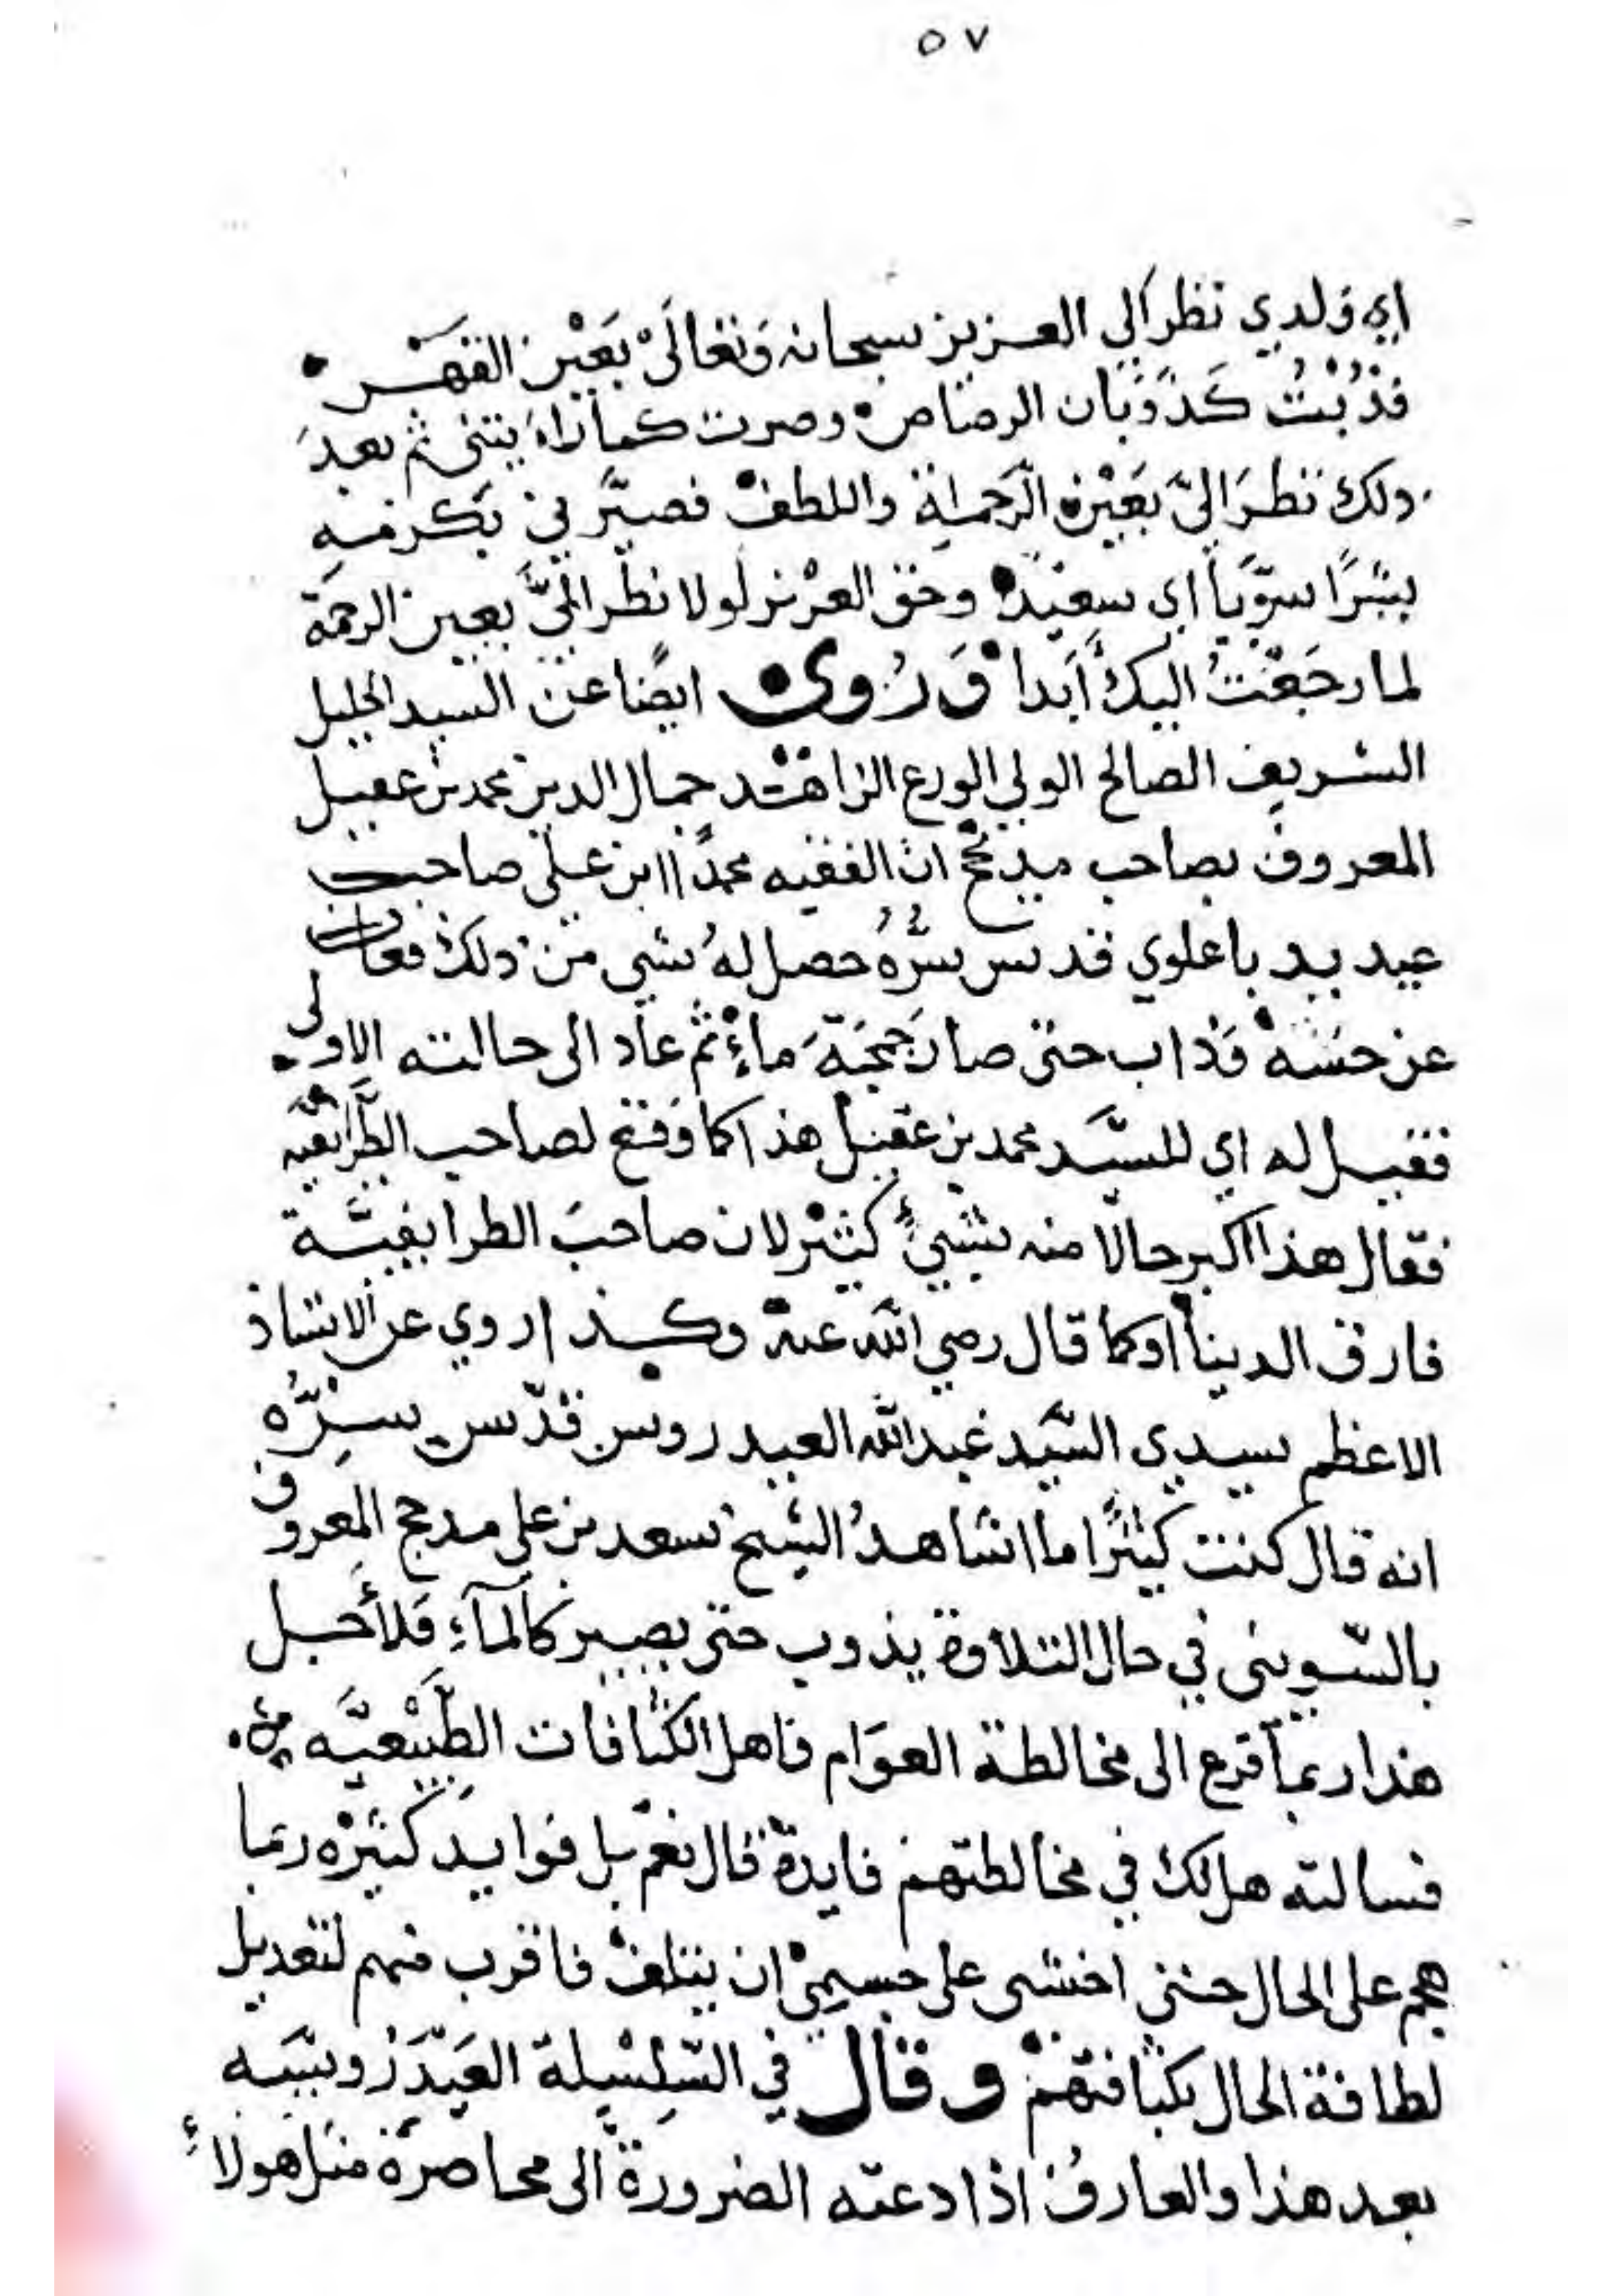 ٥٧
اي وَلدي نظر الي العزيز سبحانه وَتعَالَىْ بعَيْن القهَر
فذُبْتُ كذَوَبَان الرصاص وصرت كما تراهُ يتني ثم بعدَ
ذلك نظرَ اليّ بعَيْن الرَّحمة واللطف فصيَّرني بكرمه
بشَرًا سَوّيًا اي سعيد وحق العزيز لولا نظر اليَّ بعين الرحمة
لما رجَعْتُ اليك أبَدا وَرُوي ايضًا عن السيد الجليل
الشريف الصالح الولي الورع الزاهد جمال الدين محمد بن عقيل
المعروف بصاحب مديحج ان الفقيه محمدًا ابن علي صاحب
عيديد باعلوي قدس سرُّهُ حصل لهُ شي من ذلك فغاب
عن حسّه فذاب حتى صار جمجمَةَ ماءٍ ثم عاد الى حالته الاولى
فقيل له اي للسَّيد محمد بن عقيل هذا كما وَقع لصاحب الطَّرايفيّه
فقال هذا اكبر حالا منه بشيءٍ كثير لان صاحبَ الطرايفيَّة
فارق الدينا اوكما قال رضي الله عنه وكذا روي عن الاستاذ
الاعظم سيدي السَّيد عَبد الله العيدروس قدّس سِرُّه
انه قال كنت كثيرًا ما اشاهدُ الشيخ سعد بن علي مدحج المعروف
بالسّويني في حال التلاوة يذوب حتى يصير كالمآءِ فلأجل
هذا ربما افزع الى مخالطة العوَام فاهل الكثافات الطَّبيْعيَّه
فسالته هل لك في مخالطتهم فايدة قال نعم بل فوايد كثيره ربما
هجم على الحال حتى اخشى على جسمي ان يتلف فاقرب منهم لتعديل
لطافة الحال بكثافتهم وقال في السّلْسِلة العَيْدَرُوسيّه
بعد هذا والعارف اذا دعته الضرورة الى محاضرة مثل هولاءِ